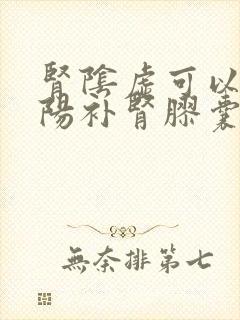 腎陰虛可以
陽补腎膠囊
無奈排第七